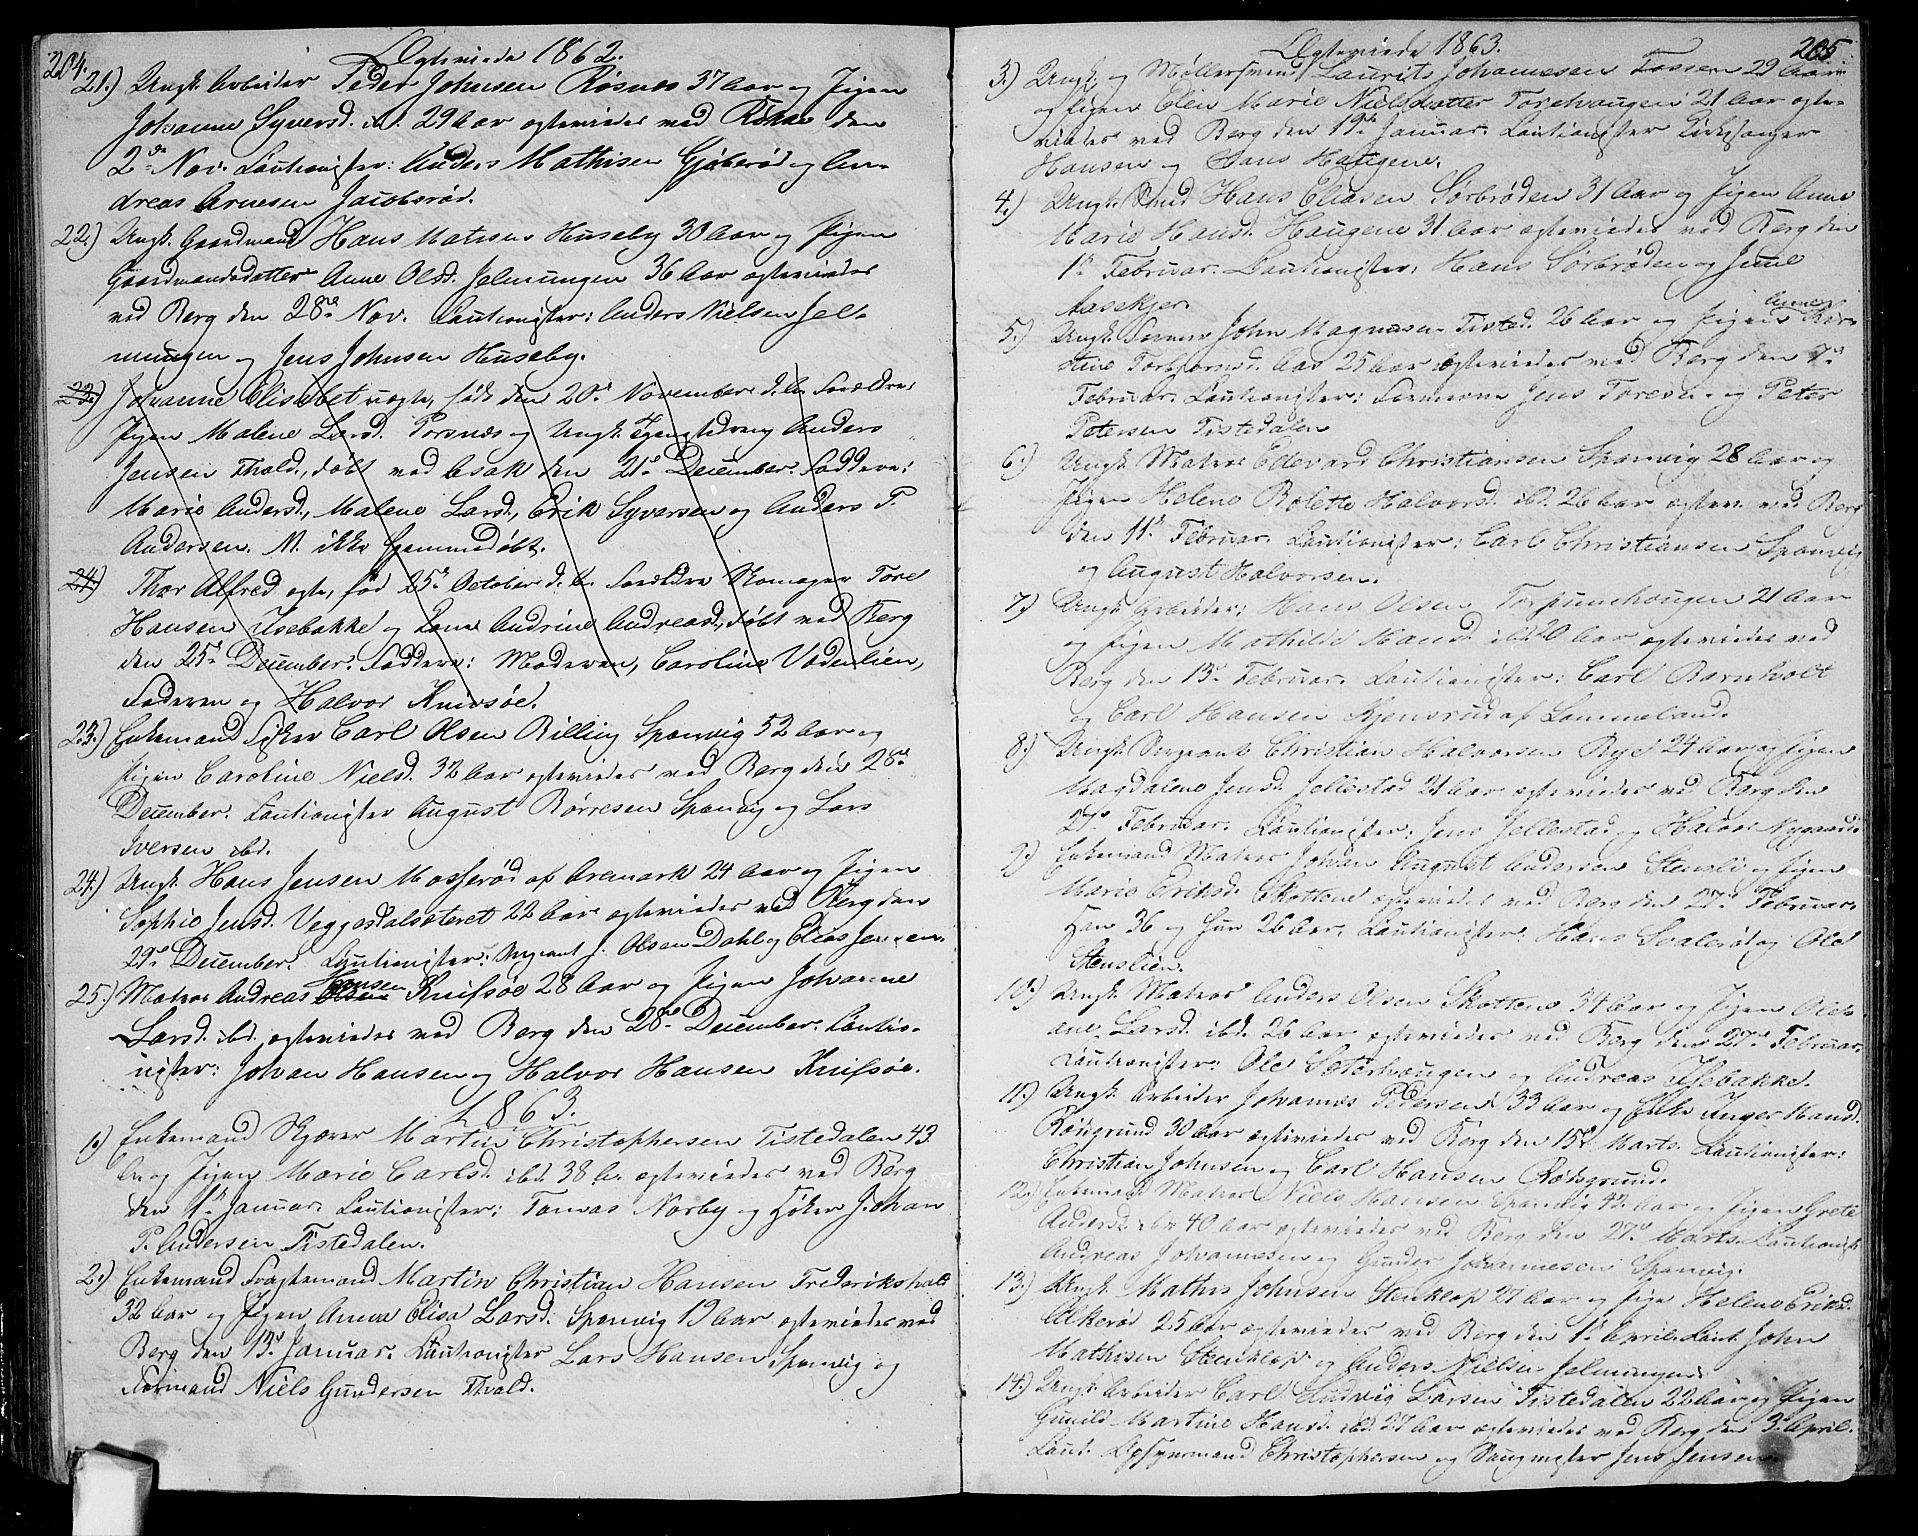 204.
Ægteviede 1862.
21.) Ungk. Arbeider Peder Johnsen Røsnes 37 Aar og Pigen
Johanne Syversd. ibd. 29 Aar ægteviedes ved Rokke den
2de Nov. Cautionister: Anders Mathisen Gjøberød og An-
dreas Arnesen Jacobsrød.
22.) Ungk. Gaardmand Hans Matisen Huseby 30 Aar og Pigen
Gaardmandsdatter Anne Olsd. Jelmungen 36 Aar ægteviedes
ved Berg den 28de Nov. Cautionister: Anders Nielsen Jel-
mungen og Jens Johnsen Huseby.
23.) Johanne Elisabet uægte, født den 20de November d.A. Forældre:
Pigen Malene Larsd. Torsnes og Ungk. Anders
Jensen Fhald., døbt ved Asak den 21de December. Faddere:
Marie Andersd., Malene Larsd., Erik Syversen og Anders P.
Andersen. N. ikke hjemmedøbt.
24.) Thor Alfred ægte, fød 25de October d.A. Forældre Skomager Tore
Hansen Isebakke og Lene Andrine Andreasd., døbt ved Berg
den 25de December. Faddere: Moderen, Caroline Vadenlien,
Faderen og Halvor Knivsøe.
23.) Enkemand Fisker Carl Olsen Rilling Sponvig 52 Aar og
Pigen Caroline Nielsd. 32 Aar ægteviedes ved Berg den 28de
December. Cautionister August Børresen Sponvig og Lars
Iversen ibd.
24.) Ungk. Hans Jensen Mosserød af Aremark 24 Aar og Pigen
Sophie Jensd. Veggestalsæteret 22 Aar ægteviedes ved Berg den
29de December. Cautionister: Sergeant J. Olsen Dahl og Elias Jensen.
25.) Matros Andreas Hansen Knifsøe 28 Aar og Pigen Johanne
Larsd. ibd. ægteviedes ved Berg den 28de December. Cautio-
nister: Johan Hansen og Halvor Hansen Knifsøe.
1863.
1.) Enkemand Skjærer Martin Christophersen Tistedalen 43
A. og Pigen Marie Carlsd. ibd. 38 A. ægteviedes ved Berg
den 1ste Januar. Cautionister: Tomas Norby og Høker Johan
P. Andersen Tistedalen.
2.) Enkemand Fragtemand Martin Christian Hansen Frederikshald
32 Aar og Pigen Anne Elisa Larsd. Sponvig 19 Aar ægteviedes ved
Berg den 13de Januar. Cautionister Lars Hansen Sponvig og
Formand Niels Gundersen Fhald.
205
Ægteviede 1863.
3.) Ungk. og Møllersvend Laurits Johannesen Fossen 29 Aar
og Pigen Elin Marie Nielsdatter Torehougen 21 Aar ægte-
viedes ved Berg den 19de Januar. Cautionister Kirkesanger
Hansen og Hans Haugene.
4.) Ungk. Smed Hans Eliasen Sørbrøden 31 Aar og Pigen Anne
Marie Hansd. Haugene 31 Aar ægteviedes ved Berg den
1ste Februar. Cautionister: Hans Sørbrøden og Juul
Aasekjær.
5.) Ungk. Former John Magnusen Tisted. 26 Aar og Pigen Anne Kir-
stine Torbjørnsd. Aas 25 Aar ægteviedes ved Berg den 7de
Februar. Cautionister: Formerne Jens Toresen og Peter
Petersen Tistedalen
6.) Ungk. Matros Edevard Christiansen Sponvig 28 Aar og
Pigen Helene Bolette Halvorsd. ibd. 26 Aar ægtev. ved Berg
den 11te Februar. Cautionister: Carl Christiansen Sponvig
og August Halvorsen.
7.) Ungk. Arbeider: Hans Olsen Torpumhougen 21 Aar
og Pigen Mathilde Hansd. ibd 20 Aar ægteviedes ved
Berg den 13de Februar. Cautionister: Carl Barnholt
og Carl Hansen Kjensrud af Lammeland.
8.) Ungk. Sergeant Christian Halvorsen Bye 24 Aar og Pigen
Magdalene Jensd. Jellestad 21 Aar ægteviedes ved Berg den
27de Februar. Cautionister: Jens Jellestad og Halvor Nygaard.
9.) Enkemand Matros Johan August Andersen Stensli og Pigen
Marie Eriksd. Skottene ægteviedes ved Berg den 27de Februar.
Han 36 og Hun 26 Aar. Cautionister: Hans Svalerød og Ole
Stenslien.
10.) Ungk. Matros Anders Olsen Skottene 34 Aar og Pigen Ole-
ane Larsd. ibd. 26 Aar ægteviedes ved Berg den 27de Februar.
Cautionister: Ole Sæterhougen og Andreas Isebakke.
11.) Ungk. Arbeider Johannes Pedersen 33 Aar og Enke Inger Hansd.
Rødsgrund 30 Aar ægteviedes ved Berg den 15de Marts. Cautionister:
Christian Johnsen og Carl Hansen Rødsgrund.
12.) Enkemand Matros Niels Hansen Sponvig 42 Aar og Pigen Grete
Andersd. ibd 40 Aar ægteviedes ved Berg den 27de Marts. Cautionist.
Andreas Johannesen og Gunder Johannesen Sponvig.
13.) Ungk. Mathis Johnsen Stenklop 27 Aar og Pige Helene Eriksd.
Alkerød 25 Aar ægteviedes ved Berg den 1ste April. Caut. John
Mathisen Stenklop og Anders Nielsen Jelmungen.
14.) Ungk. Arbeider Carl Ludvig Larsen Tistedalen 22 Aar og Pigen
Gunild Martine Hansd. ibd. 27 Aar ægteviedes ved Berg den 3de April.
Caut. Opsynsmand Christophersen og Saugmester Jens Jensen.